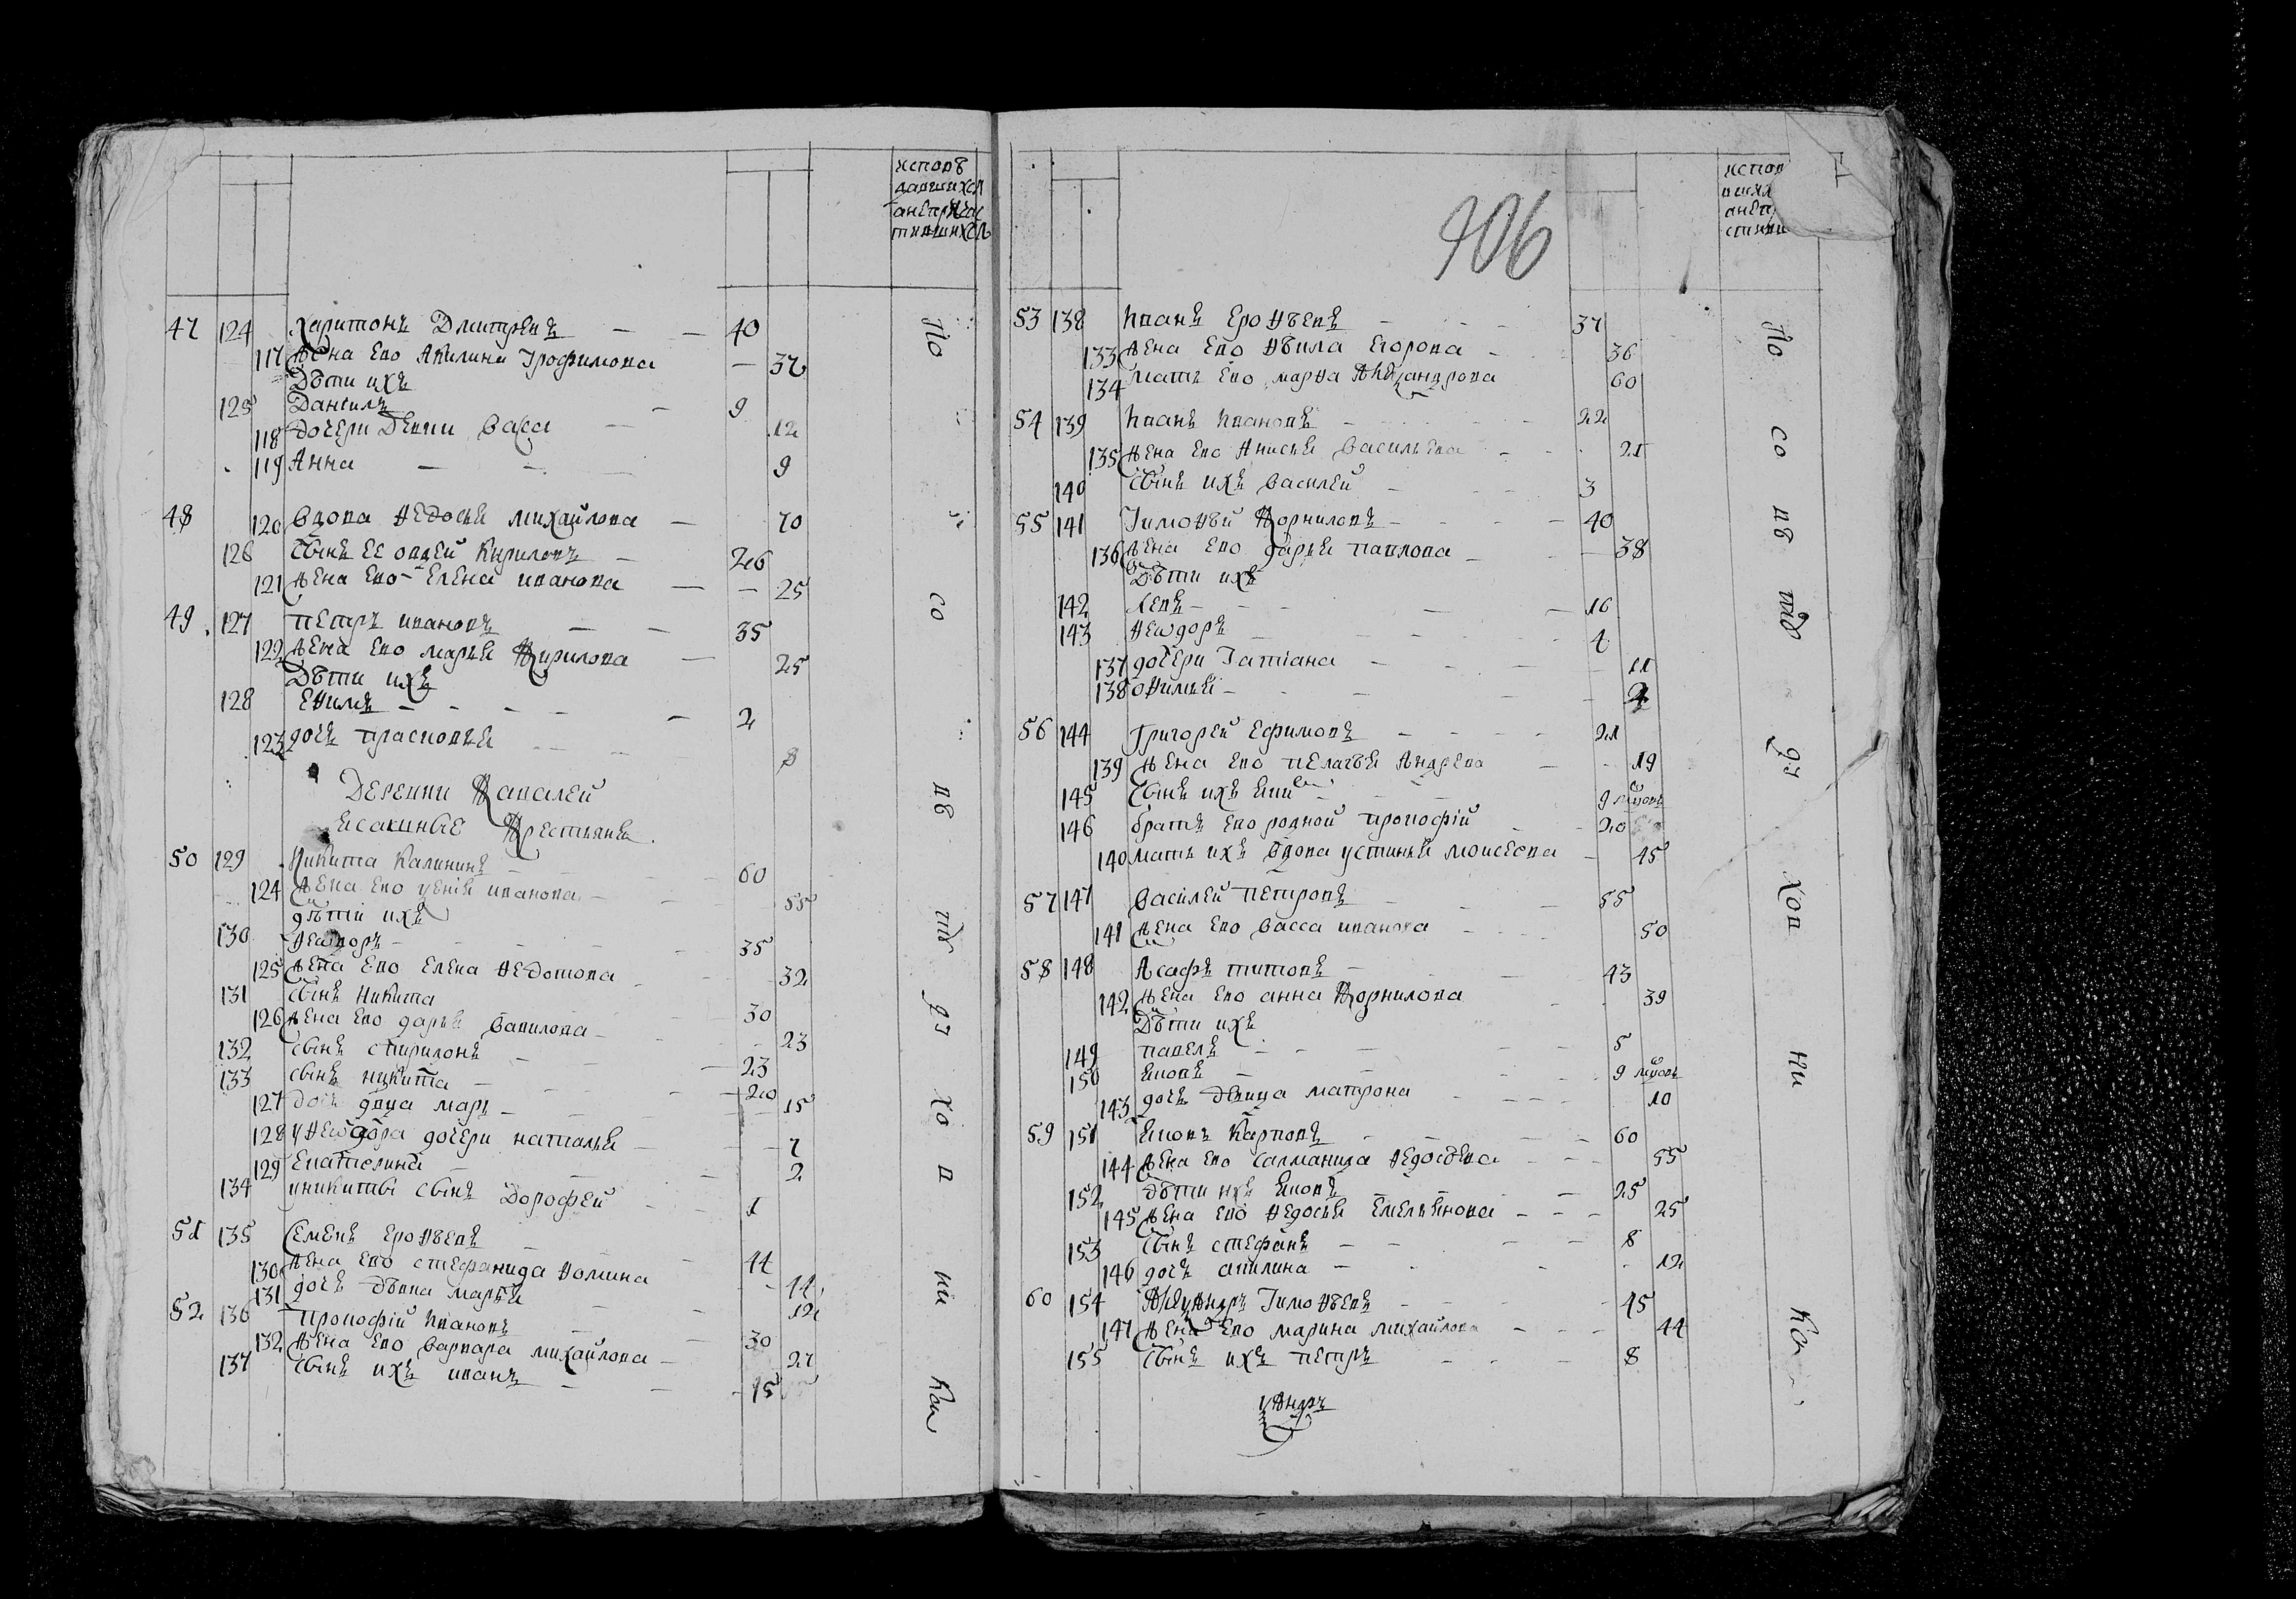 испов
давшихся
анепрiча
тившихся
47 124 Харитонъ Дмитревъ — — 40
117 жена ево Акилина Трофимова — 37
Дѣти ихъ
125 Данiилъ — 9
118 дочери Девки Васса — 12
119 Анна — — 9
48 120 Вдова Федосья Михайлова — 70
126 Сынъ ее Кириловъ — 26
121 жена ево Елена иванова — — 25
49 127 Петръ ивановъ — — 35
122 жена ево Марья Кирилова — 25
Дѣти ихъ
128 — — — — 2
123 дочь прасковья — — — 8
Деревни
Ясашные крестьяне
50 129 Никита Калининъ — 60
124 жена ево иванова — 55
дѣти ихъ
130 Феѡдоръ — 35
125 жена ево Елена Федотова — 32
131 Сынъ Никита 30
126 жена ево дарья Вавилова — 23
132 Сынъ спиридонъ — 23
133 сынъ никита — 20
127 дочь двца марь — 15
128 у Феѡдора дочери наталья — 7
129 Екатерина — 2
134 уникиты сынъ Дорофей — 1
51 135 Семенъ Ерофѣевъ — 44
130 жена ево стефанида Фомина 44
131 дочь дѣвка марья 12
52 136 Прокофiй Ивановъ 30
132 жена ево варвара михайлова — 27
137 Сынъ ихъ иванъ — — 15
По
со
вѣ
тѣ
дз
хо
в
ни
ки
406
испов
53 138 Иванъ Ерофѣевъ — 37
133 жена ево Фѣкла Егорова — 36
134 мать ево марфа Алеѯандрова 60
54 139 Иванъ Ивановъ — 22
135 жена ево Анисья Васильева — 21
140 Сынъ ихъ василей — 3
55 141 Тимофѣй Корниловъ — 40
136 жена ево дарья павлова — 38
Дѣти ихъ
142 левъ — — — 16
143 Феѡдоръ — 4
137 дочери Татiана — — 11
138 офимья — —
56 144 Григорей Ефимовъ — — 21
139 жена ево пелагѣя Андрева — 19
145 Сынъ ихъ 9 мцовъ
146 братъ ево родной прокофiй — 20
140 мать ихъ вдова устинья моисеева — 45
57 147 Василей петровъ — 55
141 жена ево васса иванова — 50
58 148 Асафъ титовъ — 43
142 жена ево анна Корнилова 39
Дѣти ихъ
149 павелъ — — 5
150 яковъ — 9 мцовъ
143 дочь двица матрона — 10
59 151 Яковъ Карповъ — 60
144 жена ево Саломанида Федосѣева 55
152 дѣти ихъ яковъ — — 25
145 жена ево Федосья Емельянова — — 25
153 Сынъ стефанъ — — 8
146 дочь акилина — 12
60 154 Алеѯандръ Тимофѣевъ — 45
147 жена ево марина михайлова — 44
155 Сынъ ихъ петръ — 8
По
со
вѣ
тѣ
дз
хов
ни
ки